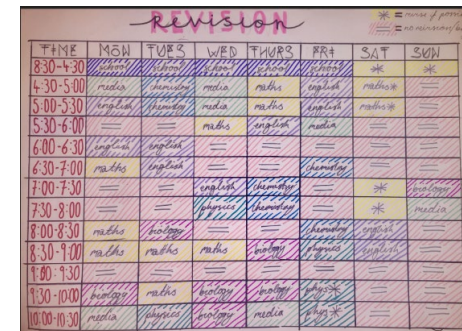 REVISION
TIME MON TUES WED THURS FRI SAT SUN
8:30-4:30 school school school school school * *
4:30-5:00 media chemistry media maths english maths* =
5:00-5:30 english chemistry media maths english maths* =
5:30-6:00 = = maths english media = =
6:00-6:30 english english = = = = =
6:30-7:00 maths english = = chemistry = =
7:00-7:30 = = english chemistry = * biology
7:30-8:00 = = physics chemistry = * media
8:00-8:30 maths biology = = chemistry english =
8:30-9:00 maths maths maths biology physics english =
9:00-9:30 = = = = = = =
9:30-10:00 biology maths biology biology phys* = =
10:00-10:30 media physics biology media phys* = =